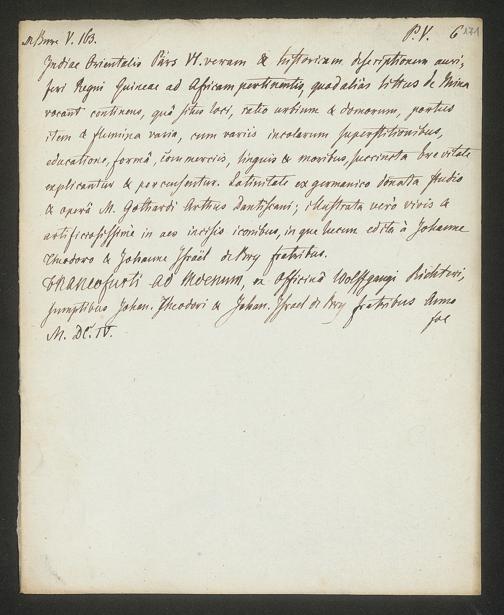 M. Burr V. 163. P. V. 6 271
Indiae Orientalis Pars VI. veram & historicam descriptionem auri,
feri Regni Guineae ad Africam pertinentis, quod alias littus de Mina
vocant continens, quâ situs loci, ratio urbium & domorum, portus
item & flumina varia, cum variis incolarum superstitionibus,
educatione, formâ, commerciis, linguis & moribus, succincta brevitate
explicantur & percensentur. Latinitate ex germanico donata studio
& operâ M. Gothardi Arthus Dantiscani; illustrata verò vivis &
artificiosissimè in aes incisis iconibus, inque lucem edita à Johanne
Theodoro & Johanne Israël de Bry fratribus.
FRANCOFURTI AD MOENUM, ex Officinâ Wolffgangi Richteri,
sumptibus Johan. Theodori & Johan. Israel de Bry fratribus Anno
M. DC. IV. fol